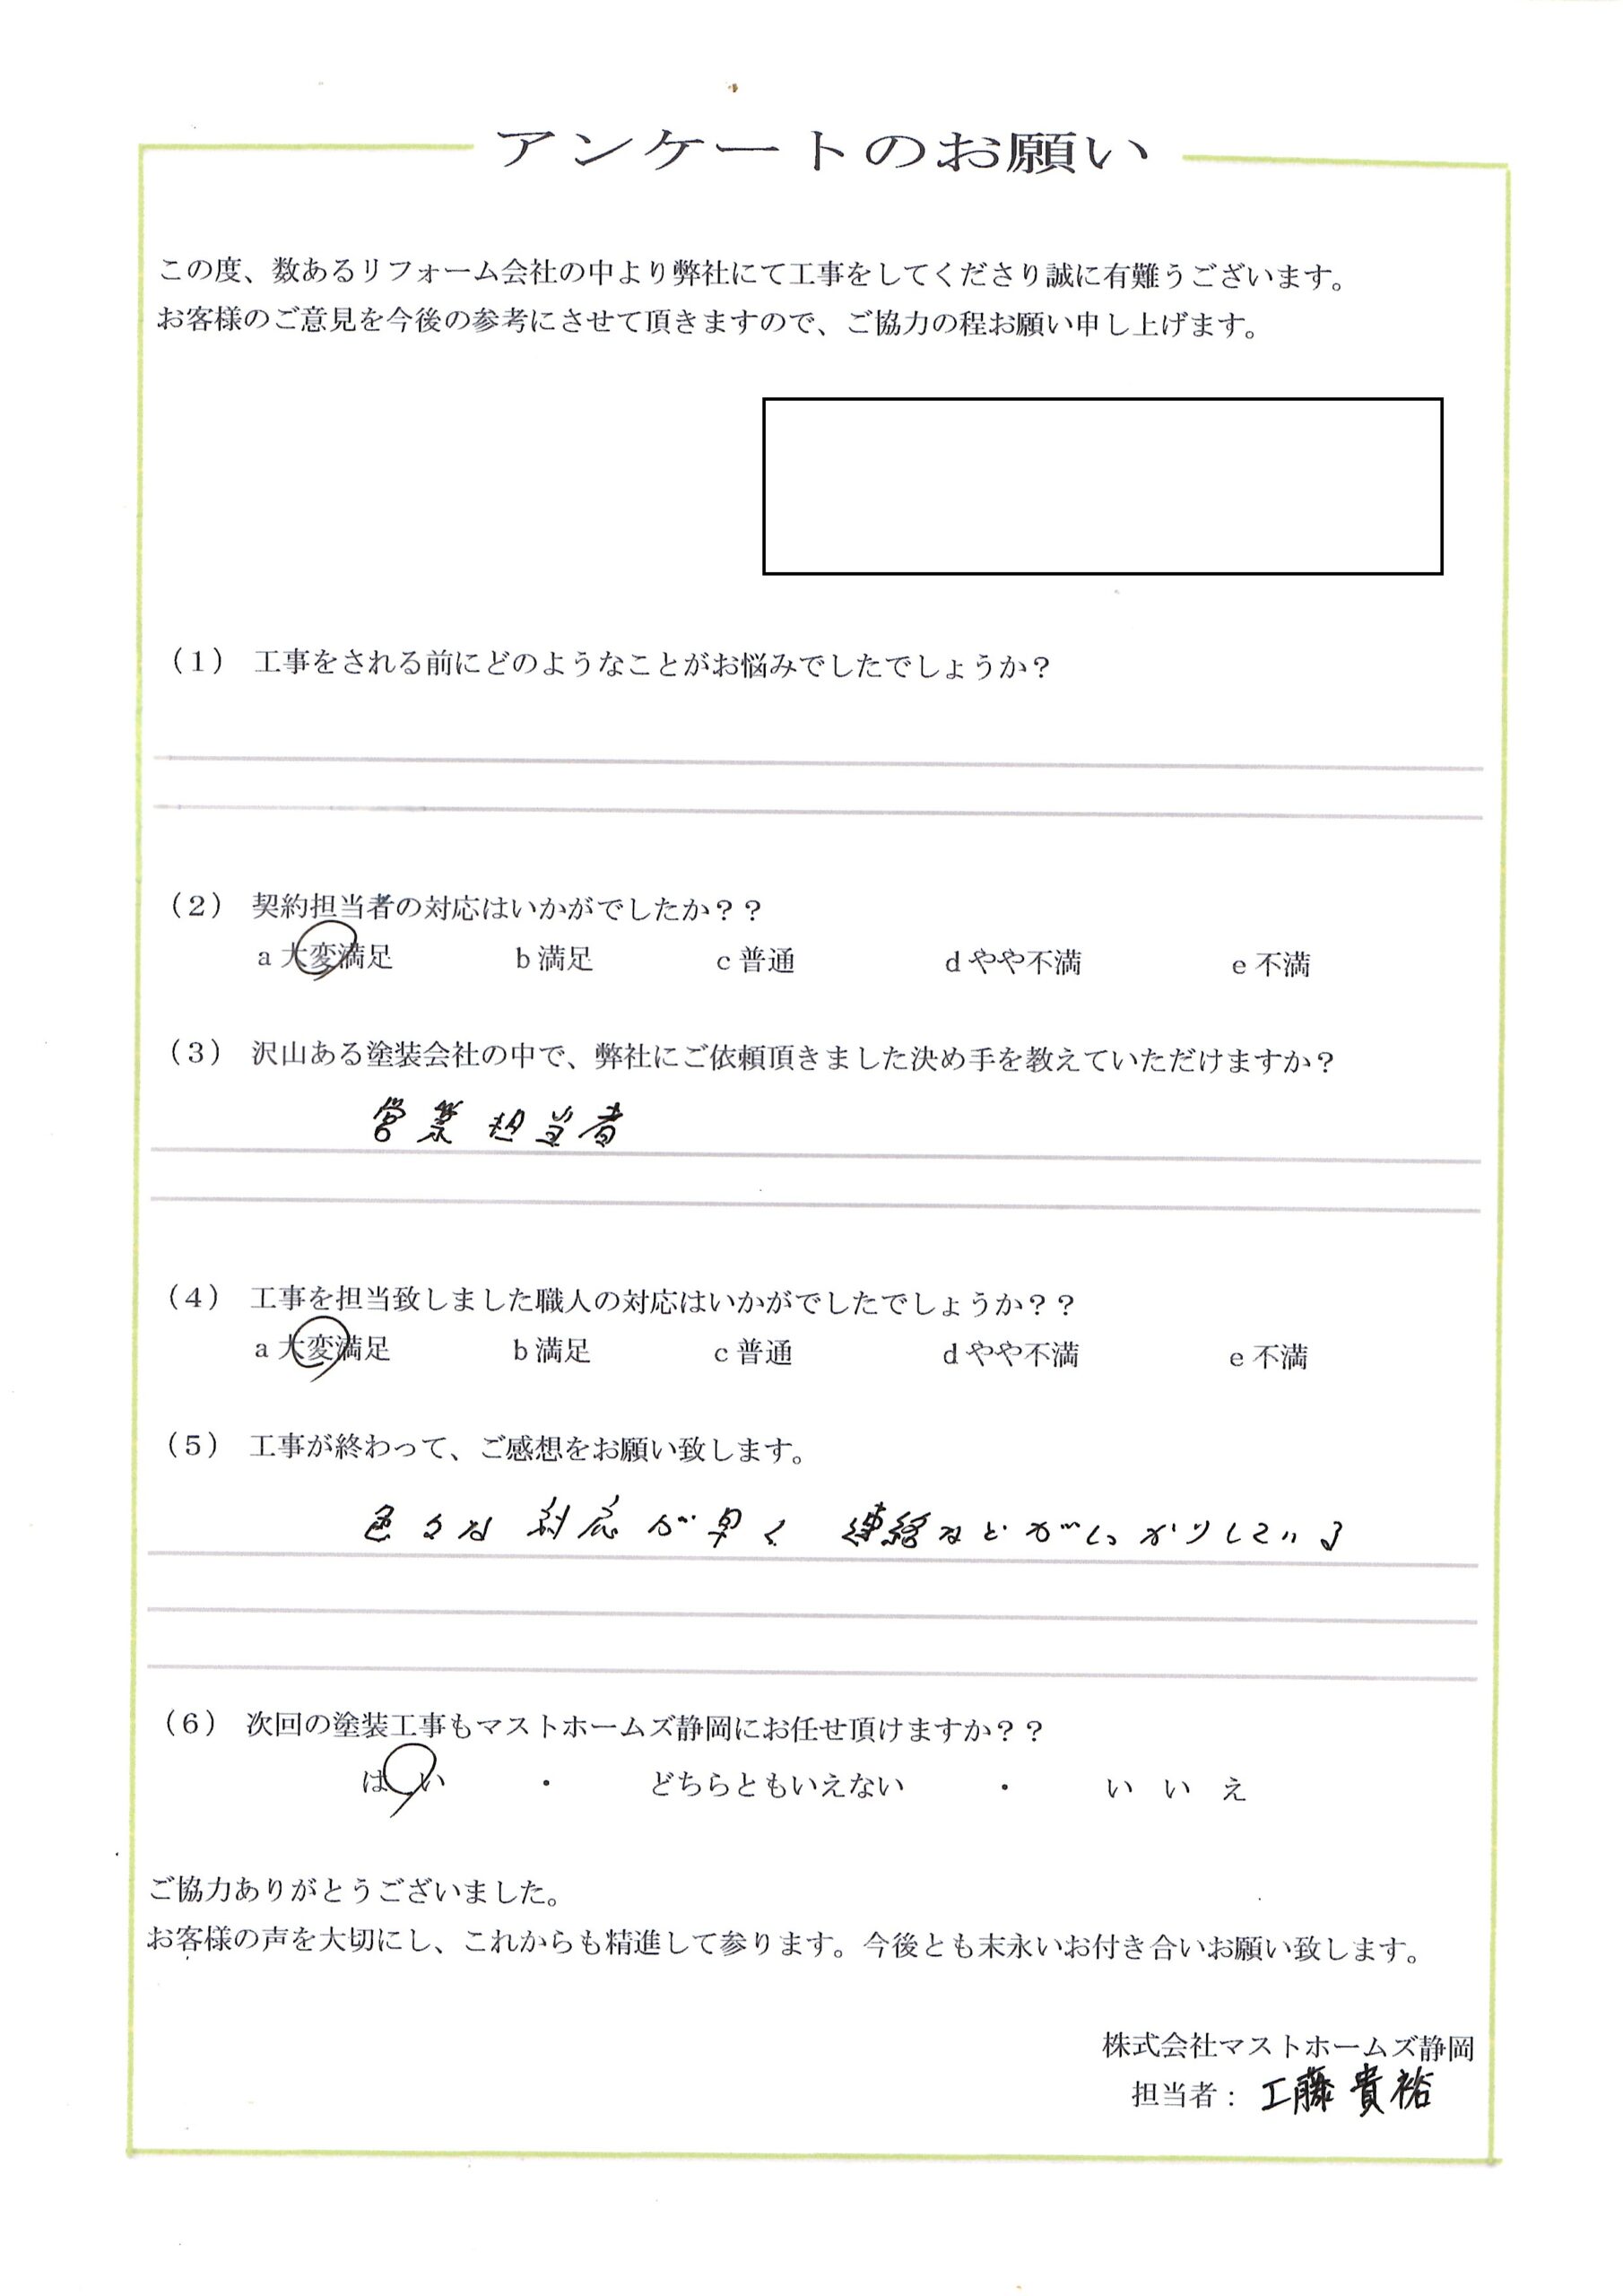 アンケートのお願い
この度、数あるリフォーム会社の中より弊社にて工事をしてくださり誠に有難うございます。
お客様のご意見を今後の参考にさせて頂きますので、ご協力の程お願い申し上げます。
（1） 工事をされる前にどのようなことがお悩みでしたでしょうか？
（2） 契約担当者の対応はいかがでしたか？？
a 大変満足 b 満足 c 普通 d やや不満 e 不満
（3） 沢山ある塗装会社の中で、弊社にご依頼頂きました決め手を教えていただけますか？
営業担当者
（4） 工事を担当致しました職人の対応はいかがでしたでしょうか？？
a 大変満足 b 満足 c 普通 d やや不満 e 不満
（5） 工事が終わって、ご感想をお願い致します。
色々な対応が早く 連絡などがしっかりしている
（6） 次回の塗装工事もマストホームズ静岡にお任せ頂けますか？？
はい ・ どちらともいえない ・ いいえ
ご協力ありがとうございました。
お客様の声を大切にし、これからも精進して参ります。今後とも末永いお付き合いお願い致します。
株式会社マストホームズ静岡
担当者： 工藤貴裕